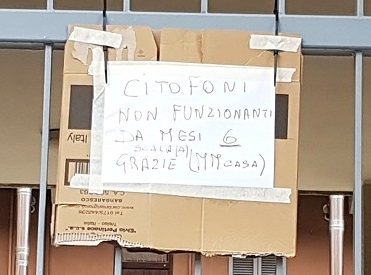 CITOFONI
NON FUNZIONANTI
DA MESI 6
SCALA(A)
GRAZIE (MM CASA)
Italy
BARBARESCO
"Elvio Pertinace s.c.a."
Treiso - Italia